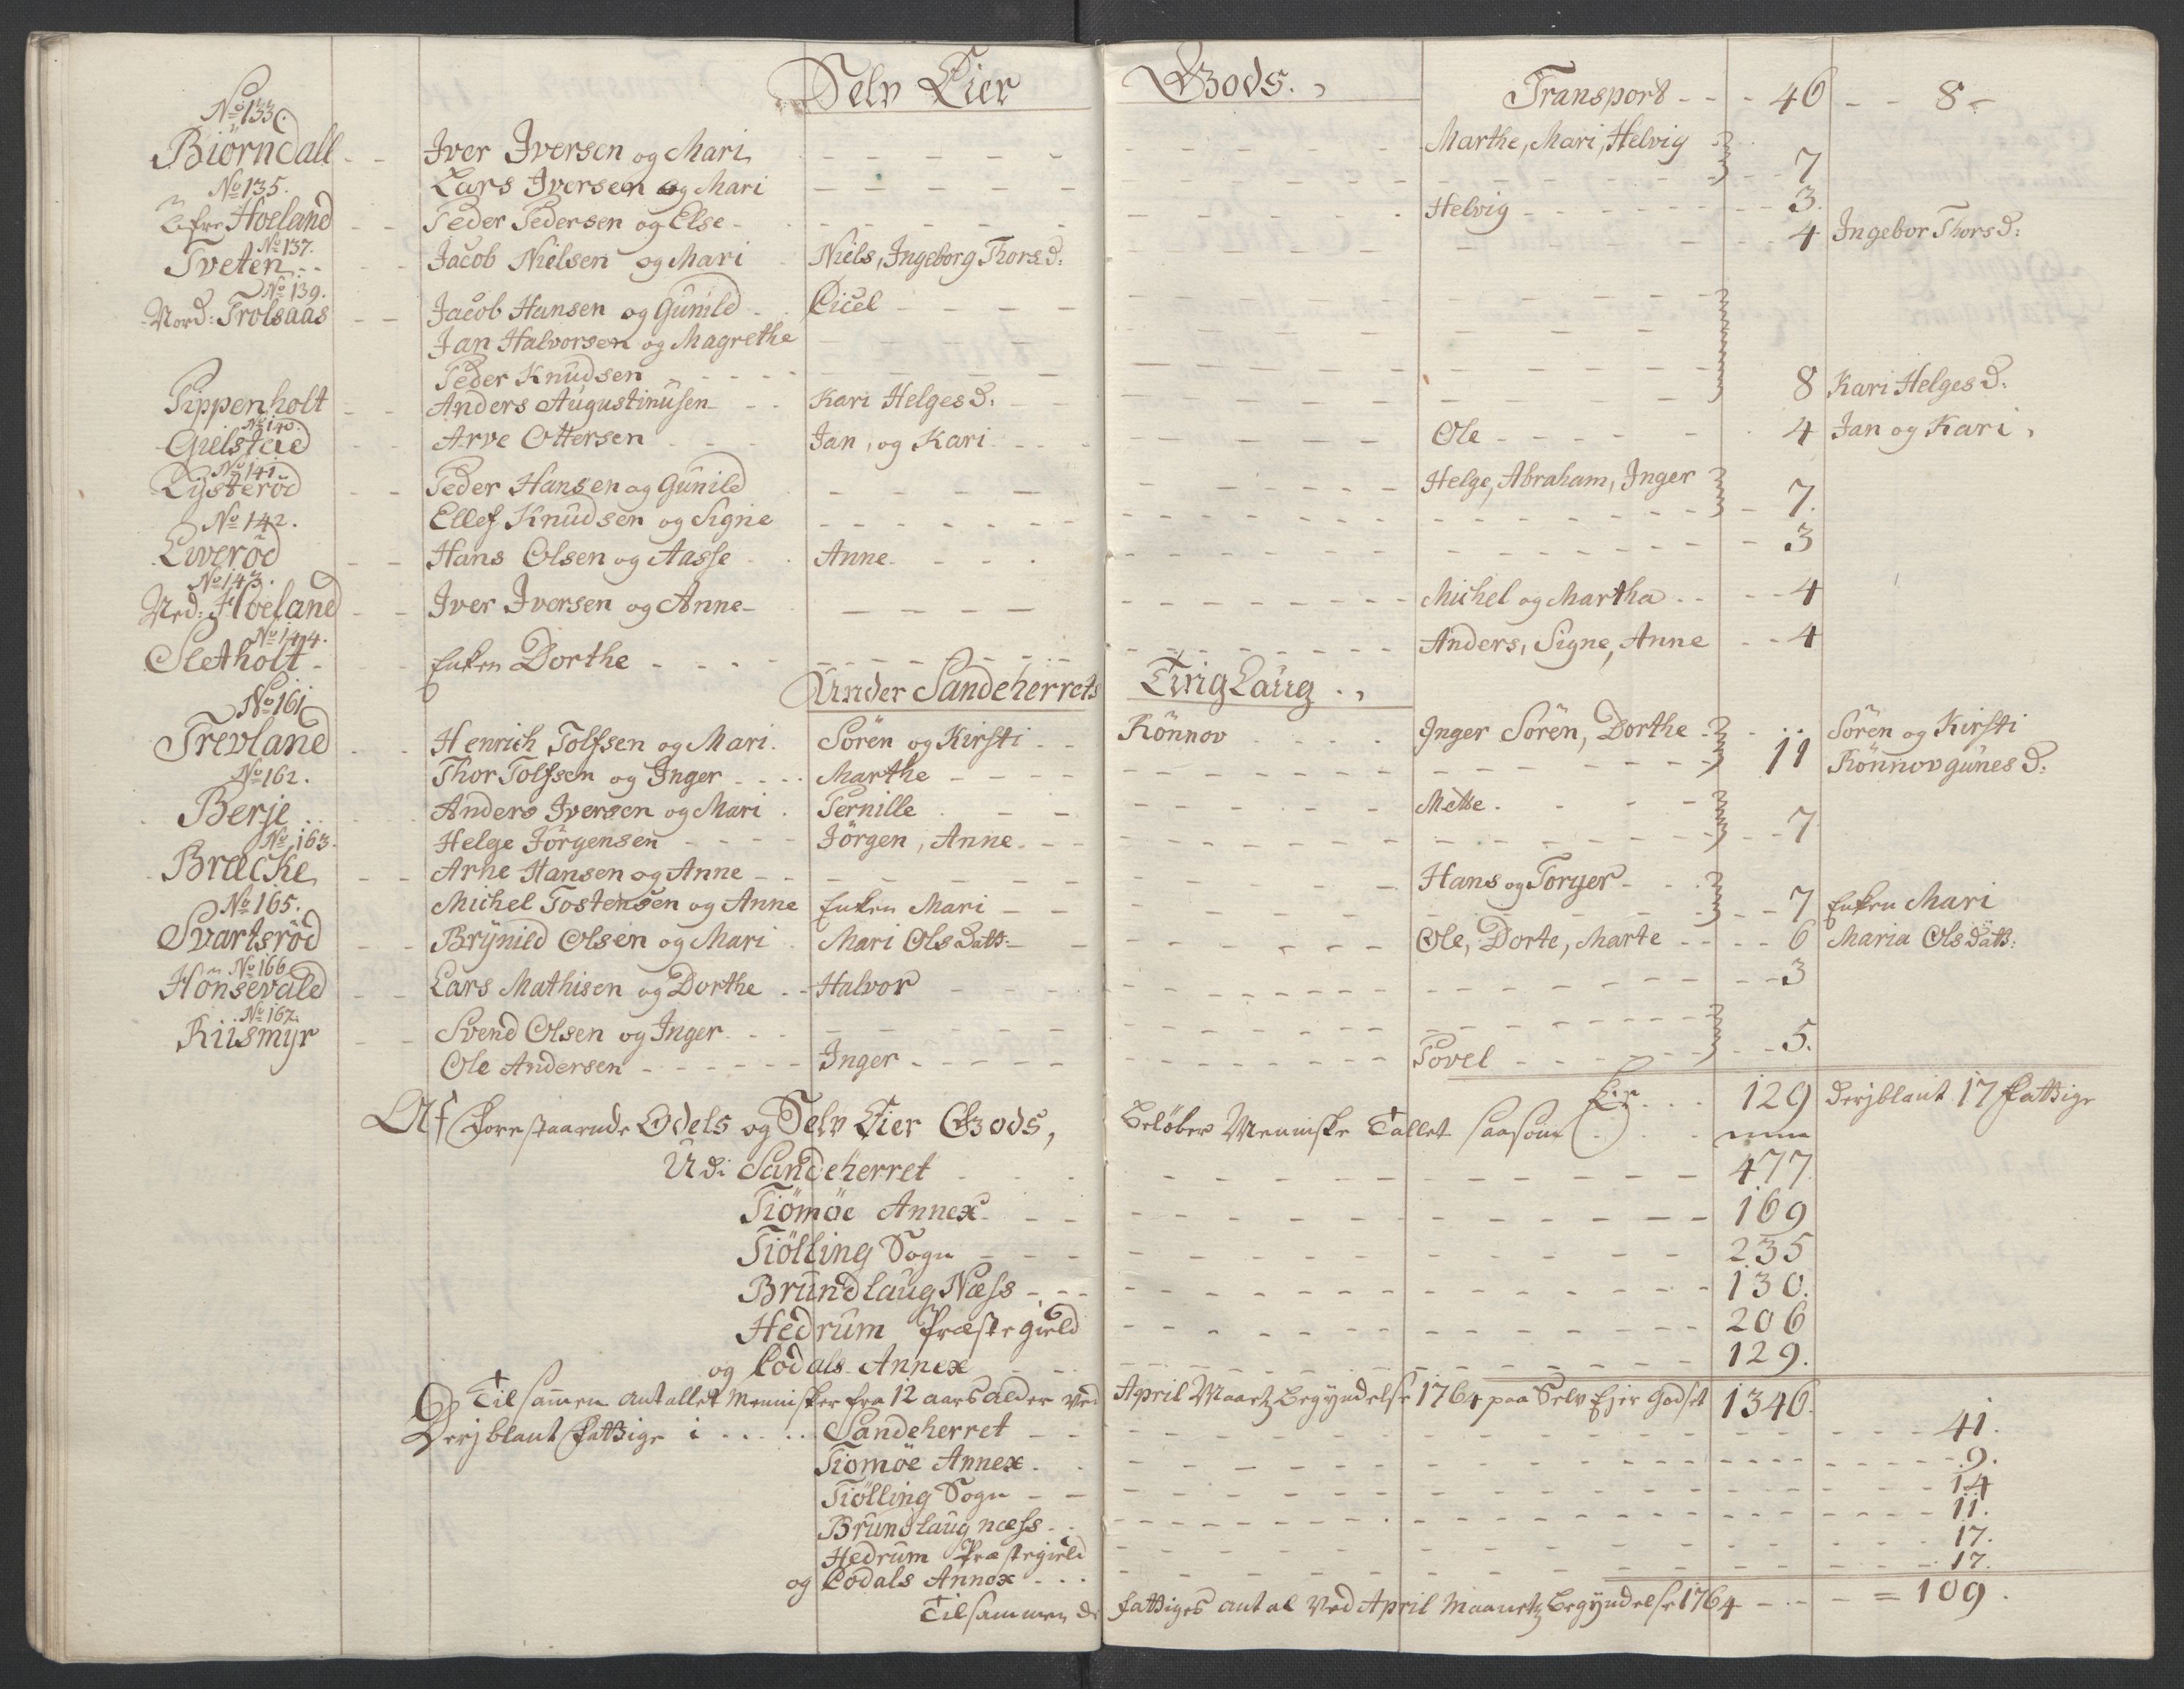 Selv Eier Gods. Transport - - - 46 - - 8 -
No 133
Biörndall - - Iver Iversen og Mari - - - - - Marthe, Mari, Helvig
Lars Iversen og Mari - - - - - 7
No 135.
Öfre Hoeland - - Peder Pedersen og Else - - - - - Helvig - - - 3.
No 137.
Tveten - - Jacob Nielsen og Mari - Niels, Ingeborg Thorsd: - - - 4 Ingebor Thorsd:
No 139.
Nord: Trolsaas - - Jacob Hansen og Gunild - Cicel - - - -
Jan Halvorsen og Magrethe - - - -
Peder Knudsen - - - -
Pippenholt - - Anders Augustinusen - - Kari Helgesd: - - - 8 Kari Helgesd:
No 140.
Gielsteied - - Arve Ottersen - - - Jan, og Kari - - - Ole - - - 4 Jan og Kari
No 141.
Lysteröd - - Peder Hansen og Gunild - - - - Helge, Abraham, Inger
Ellef Knudsen og Signe - - - - 7.
No 142.
Liveröd - - Hans Olsen og Aasse - Anne - - - - 3
No 143.
Ned: Hoeland - - Iver Iversen og Anne - - - - Michel og Martha - - - 4
No 144.
Sletholt - - Enken Dorthe - - - - Anders, Signe, Anne - - 4
Under Sandeherrets Ting Laug
No 161
Trevland - - Henrich Tolfsen og Mari. Sören og Kirsti - - Rönnov - - - Inger Sören, Dorthe - - Sören og Kirsti
Thor Tolfsen og Inger - - - Marthe - - - - 11 Rönnov gunesd:
No 162.
Berje - - Anders Iversen og Mari . Pernille - - - Mette.
Helge Jörgensen - - - Jörgen, Anne - - - 7
No 163.
Bræcke - - Arne Hansen og Anne - - - - - Hans og Torger -
Michel Tostensen og Anne Enken Mari - - - 7 Enken Mari
No 165.
Svartsröd - - Brynild Olsen og Mari . Mari Olsdatt: - - Ole, Dorte, Marte - - - 6 Maria Olsdatt:
No 166
Hönsevald - - Lars Mathisen og Dorthe - - Halvor - - - - 3
No 167.
Riismyr - - Svend Olsen og Inger - - - - -
Ole Andersen - - - - Inger - - - - Povel - - - 5.
Er - - - 129 derjblant 17 fattige
Af forestaaende Odels og Selv Eier Gods, beløber Menniske Tallet saasom
Udi Sandeherret - - - 477
Tiömöe Annex - - - 169
Tiölling Sogn - - - 235
Brundlaug Næss - - - 130.
Hedrum Præstegield - - - 206
og Lodals Annex - - - 129.
Tilsamen antallet Mennisker fra 12 aars alder ved April Maanetz Begyndelse 1764 paa Selv Ejer Godset 1346.
Derjblant fattige i - - - Sandeherret - - - 41.
Tiomöe Annex - - - 9.
Tiölling Sogn - - - 14
Brundlaug næss - - - 11.
Hedrum Præstegield - - - 17.
og Lodals Annex - - - 17.
Tilsammen de fattiges antal ved April Maanetz Begyndelse 1764 - - - = 109.